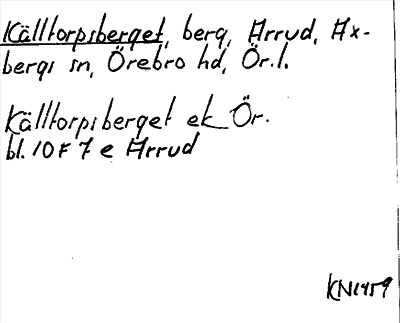 Källtorpsberget, berg, Ärrud, Ax-
bergs sn, Örebro hd, Ör.l.
Källtorpsberget ek Ör.
bl. 10F 7 e Ärrud